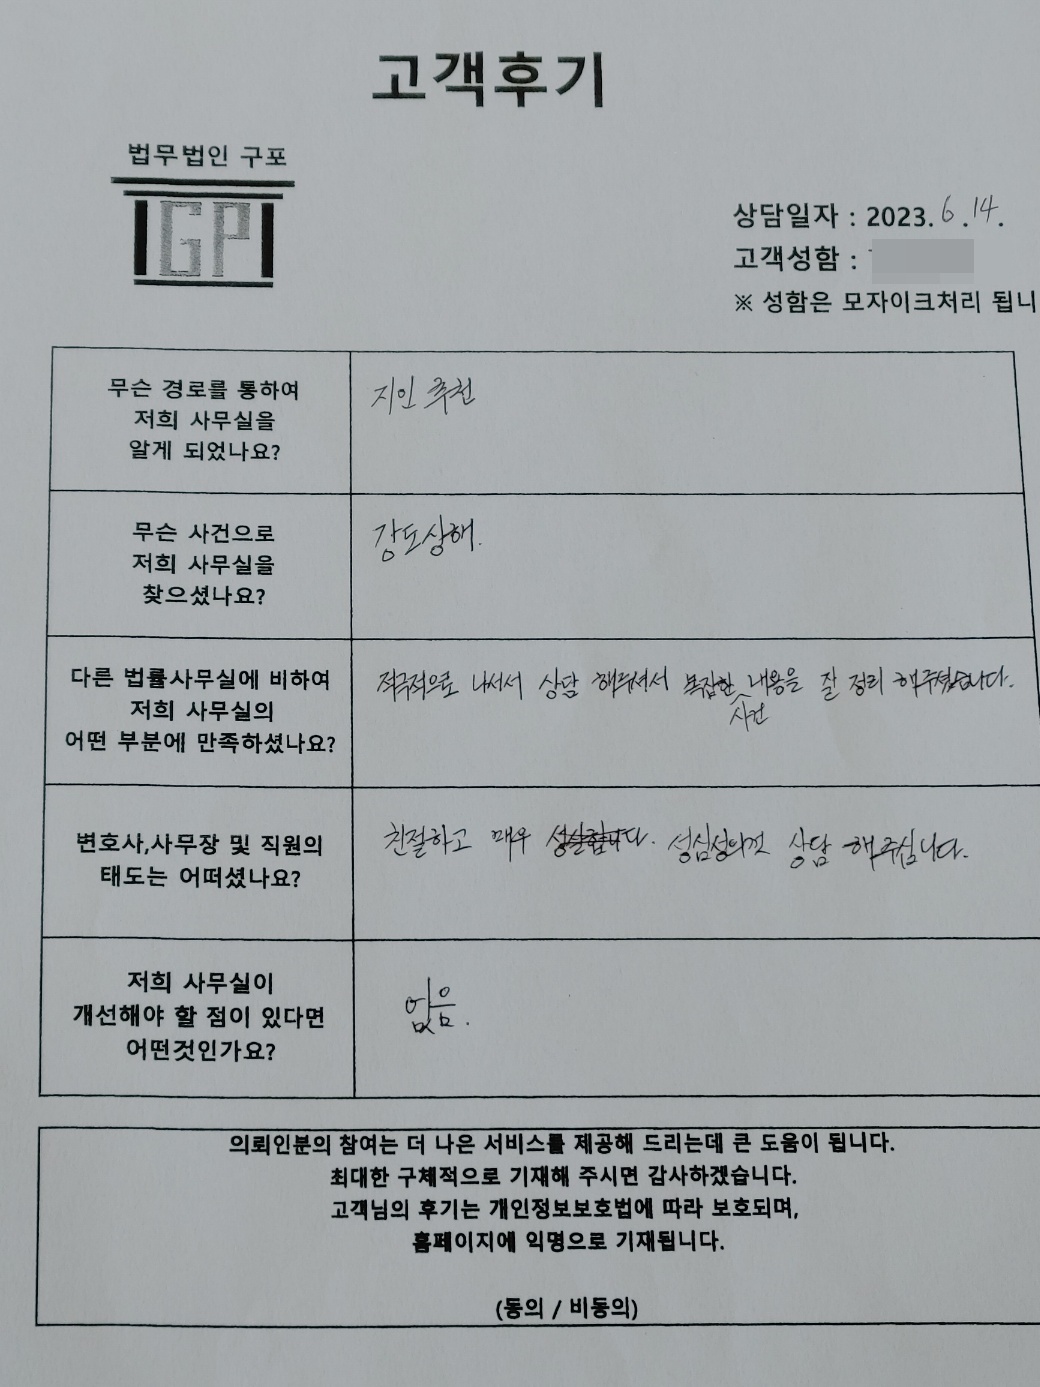 고객후기
법무법인 구포
GP
상담일자 : 2023. 6. 14.
고객성함 :
※ 성함은 모자이크처리 됩니
무슨 경로를 통하여
저희 사무실을
알게 되었나요?
지인 추천
무슨 사건으로
저희 사무실을
찾으셨나요?
강도상해.
다른 법률사무실에 비하여
저희 사무실의
어떤 부분에 만족하셨나요?
적극적으로 나서서 상담 해주셔서 복잡한 내용을 잘 정리 해주셨습니다.
사건
변호사,사무장 및 직원의
태도는 어떠셨나요?
친절하고 매우 성실합니다. 성심성의껏 상담 해주십니다.
저희 사무실이
개선해야 할 점이 있다면
어떤것인가요?
없음.
의뢰인분의 참여는 더 나은 서비스를 제공해 드리는데 큰 도움이 됩니다.
최대한 구체적으로 기재해 주시면 감사하겠습니다.
고객님의 후기는 개인정보보호법에 따라 보호되며,
홈페이지에 익명으로 기재됩니다.
(동의 / 비동의)